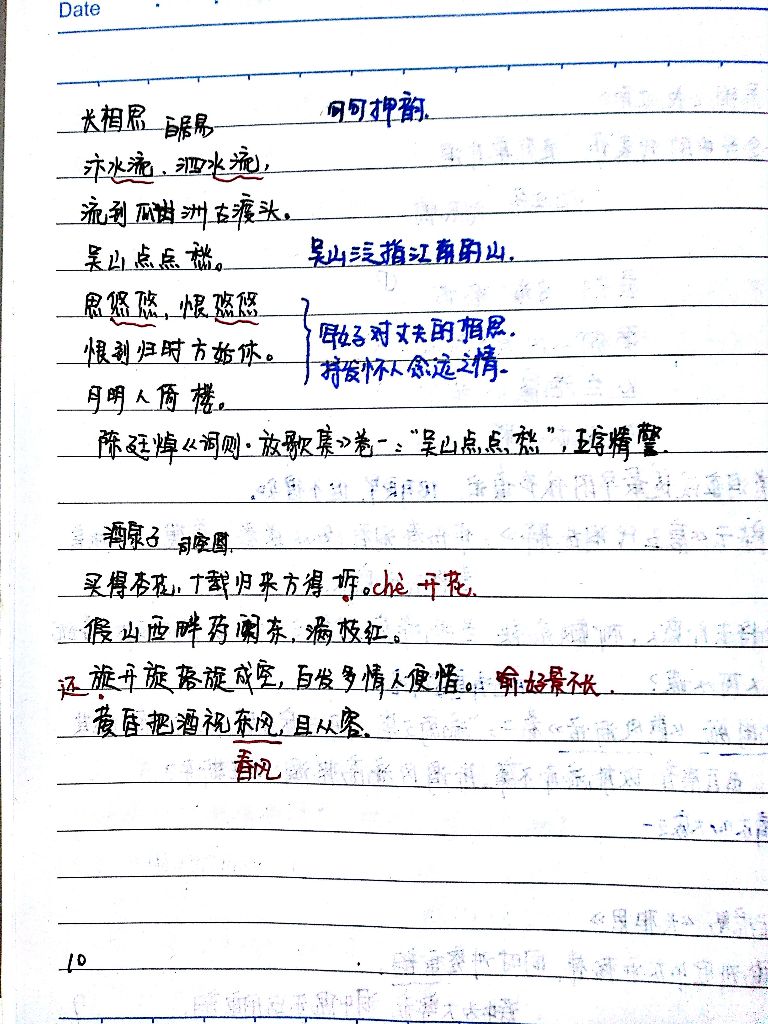 Date
长相思 白居易 句句押韵.
汴水流.泗水流,
流到瓜洲古渡头。
吴山点点愁。 吴山泛指江南的山.
思悠悠,恨悠悠
恨到归时方始休。 对丈夫的相思.
月明人倚楼。 抒发怀人念远之情。
陈廷焯《词则·放歌集》卷一:“吴山点点愁”,五字精警.
酒泉子 司空图.
买得杏花,十载归来方得坼。chè 开花.
假山西畔药阑东,满枝红。
还 旋开旋落旋成空,白发多情人便惜。: 喻好景不长.
黄昏把酒祝东风,且从容.
春风
10